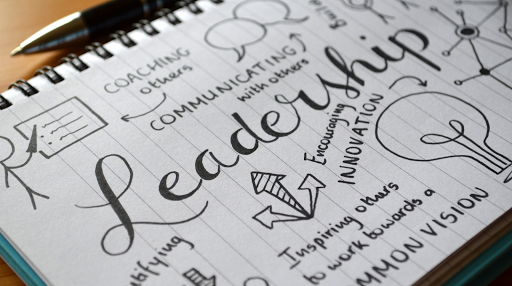 COACHING
others
COMMUNICATING
with others
Leadership
Encouraging
INNOVATION
Inspiring others
to work towards a
MMON VISION